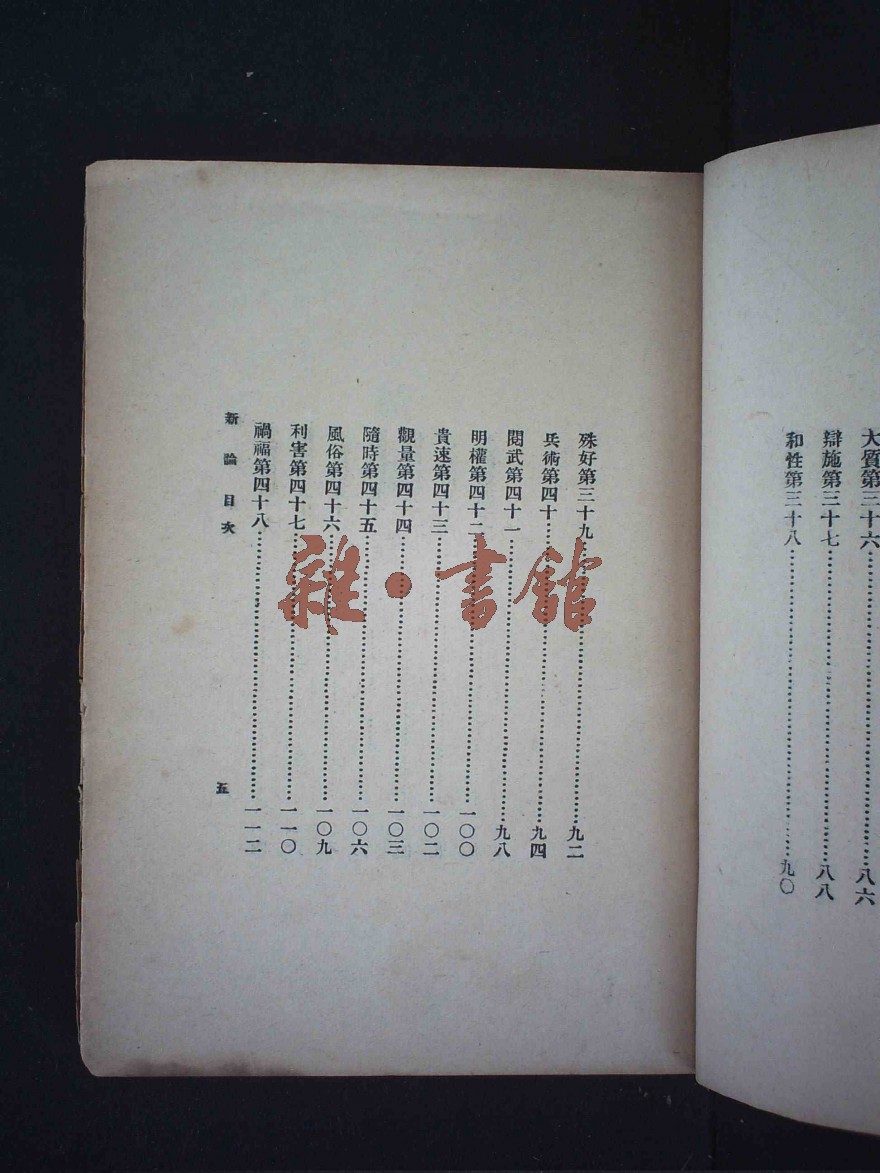 大質第三十六……八六
辯施第三十七……八八
和性第三十八……九〇
殊好第三十九……九二
兵術第四十……九四
閱武第四十一……九八
明權第四十二……一〇〇
貴速第四十三……一〇二
觀量第四十四……一〇三
隨時第四十五……一〇六
風俗第四十六……一〇九
利害第四十七……一一〇
禍福第四十八……一一二
新論目次
五
雜·書館